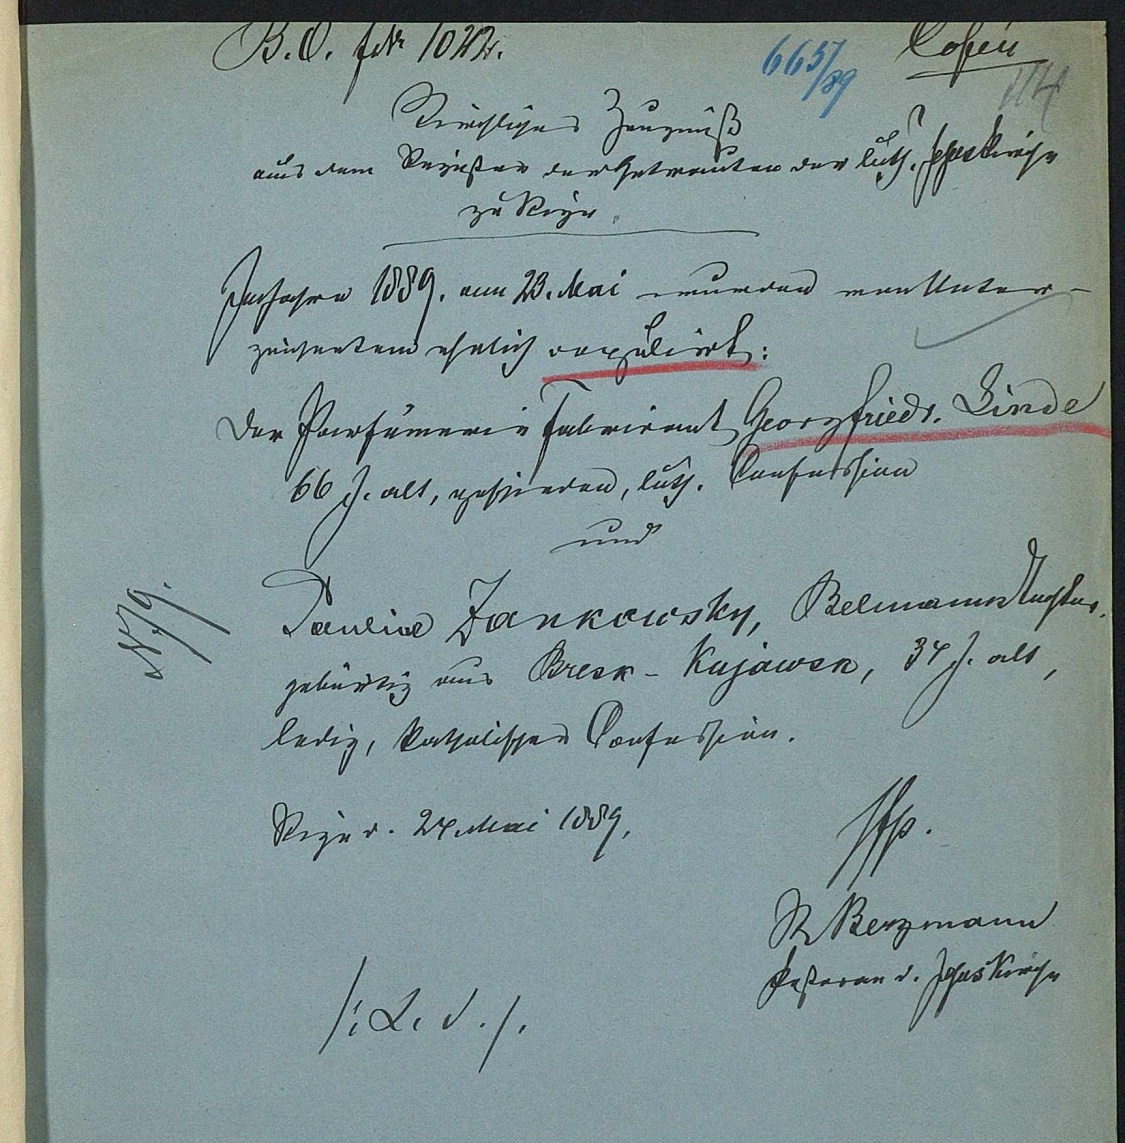 B. O. fol 1022.
665/89
Copia
114
Kirchliches Zeugniß
aus dem Register der Getrauten der luth. Jesuskirche
zu Riga.
Im Jahre 1889. am 23. Mai wurden von Unter-
zeichnetem ehelich copulirt:
Der Parfümerie Fabricant Georg Friedr. Linde
66 J. alt, geschieden, luth. Confession
und
Pauline Jankowsky, Tochter,
gebürtig aus Bresk-Kujawsk, 34 J. alt,
ledig, katholischer Confession.
No 79.
Riga d. 24. Mai 1889.
R Bergmann
Pastor an d. Jesuskirche
/: L. S. /.